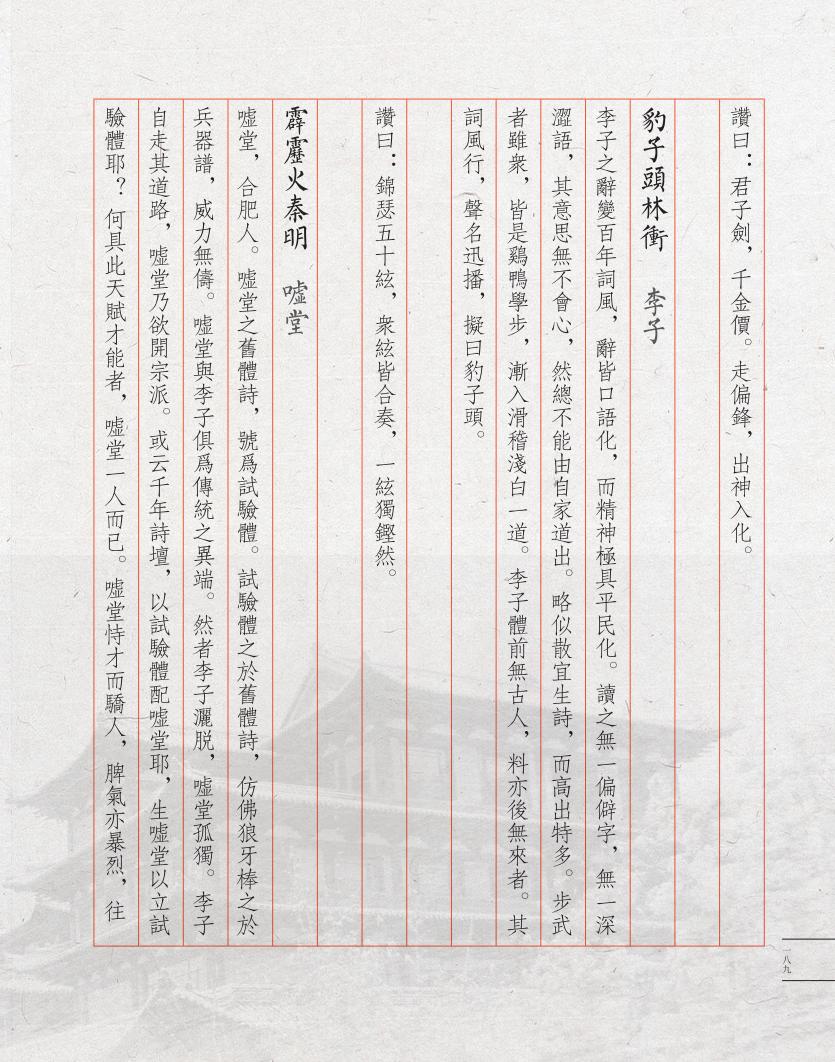 讚曰：君子劍，千金價。走偏鋒，出神入化。
豹子頭林衝　李子
李子之辭變百年詞風，辭皆口語化，而精神極具平民化。讀之無一偏僻字，無一深
澀語，其意思無不會心，然總不能由自家道出。略似散宜生詩，而高出特多。步武
者雖衆，皆是鷄鴨學步，漸入滑稽淺白一道。李子體前無古人，料亦後無來者。其
詞風行，聲名迅播，擬曰豹子頭。
讚曰：錦瑟五十絃，衆絃皆合奏，一絃獨鏗然。
霹靂火秦明　嘘堂
嘘堂，合肥人。嘘堂之舊體詩，號爲試驗體。試驗體之於舊體詩，仿佛狼牙棒之於
兵器譜，威力無儔。嘘堂與李子俱爲傳統之異端。然者李子灑脱，嘘堂孤獨。李子
自走其道路，嘘堂乃欲開宗派。或云千年詩壇，以試驗體配嘘堂耶，生嘘堂以立試
驗體耶？何具此天賦才能者，嘘堂一人而已。嘘堂恃才而驕人，脾氣亦暴烈，往
一八九